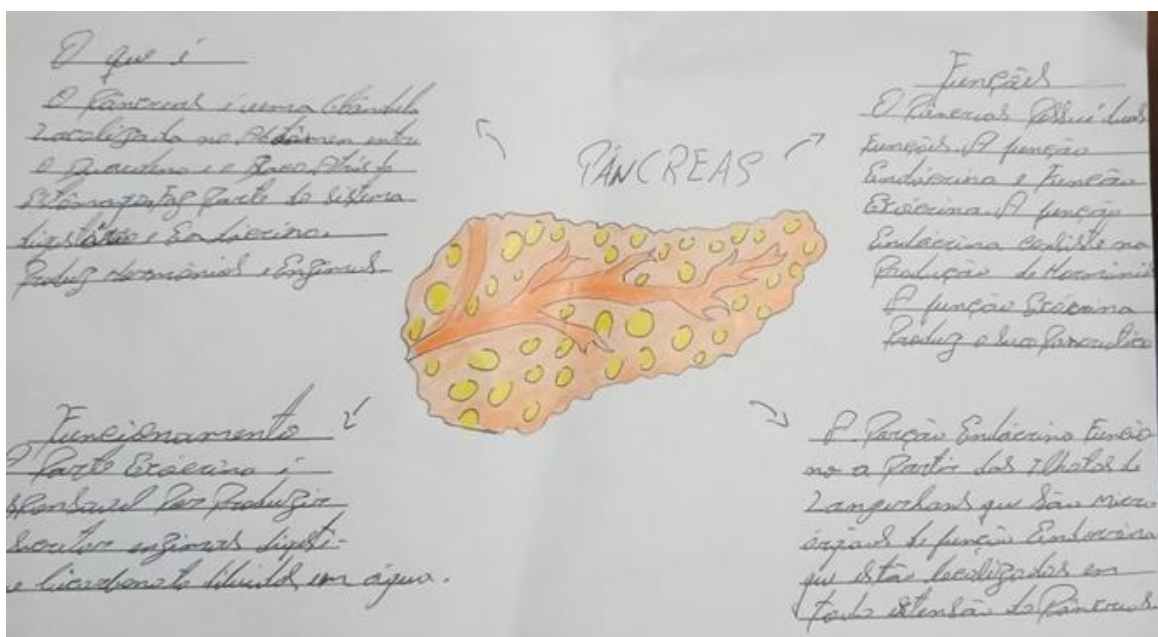 O que é
O Pâncreas é uma Glândula
Localizada no Abdômen entre
o Duodeno e o Baço Atrás do
Estômago, Faz Parte do sistema
digestório e Endócrino.
Produz Hormônios e Enzimas.
PÂNCREAS
Funções
O Pâncreas Possui duas
Funções. A função
Endócrina e Função
Exócrina. A função
Endócrina consiste na
Produção de Hormônio
A função Exócrina
Produz o Suco Pancreático
Funcionamento
A Parte Exócrina é
sponsavel Por Produzir
secretar enzimas digesti-
e bicarbonato diluídos em água.
A Porção Endócrina Funcio
na a Partir das Ilhotas de
Langerhans que São Micro
órgãos de função Endócrina
que estão localizadas em
toda extensão do Pâncreas.